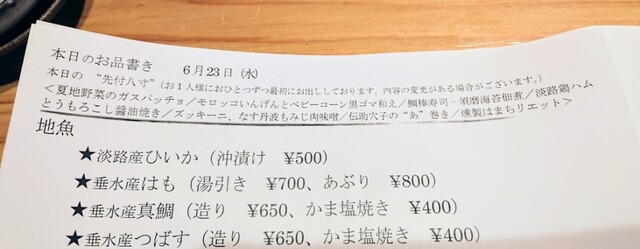 本日のお品書き　6月23日（水）
本日の “先付八寸”（お1人様におひとつずつ最初にお出ししております。内容の変更がある場合がございます。）
＜夏地野菜のガスパッチョ／モロッコいんげんとベビーコーン黒ゴマ和え／鯛棒寿司・須磨海苔佃煮／淡路鶏ハム
とうもろこし醤油焼き／ズッキーニ、なす丹波もみじ肉味噌／伝助穴子の“あ”巻き／燻製はまちリエット＞
地魚
★淡路産ひいか（沖漬け　¥500）
★垂水産はも（湯引き　¥700、あぶり　¥800）
★垂水産真鯛（造り　¥650、かま塩焼き　¥400）
★垂水産つばす（造り　¥650、かま塩焼き　¥400）